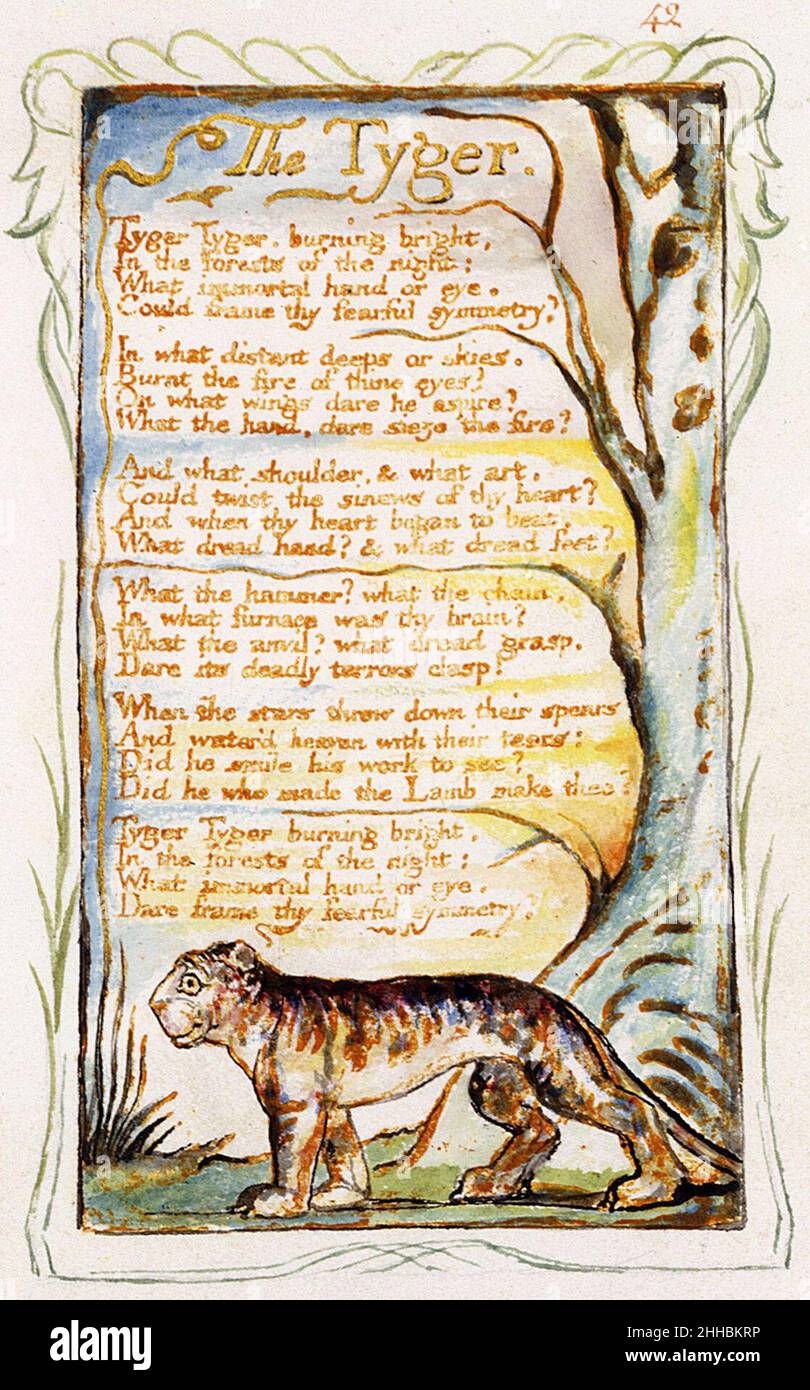 42
The Tyger.
Tyger Tyger. burning bright,
In the forests of the night:
What immortal hand or eye.
Could frame thy fearful symmetry?
In what distant deeps or skies.
Burnt the fire of thine eyes?
On what wings dare he aspire?
What the hand, dare sieze the fire?
And what shoulder, & what art.
Could twist the sinews of thy heart?
And when thy heart began to beat,
What dread hand? & what dread feet?
What the hammer? what the chain,
In what furnace was thy brain?
What the anvil? what dread grasp.
Dare its deadly terrors clasp!
When the stars threw down their spears
And water'd heaven with their tears:
Did he smile his work to see?
Did he who made the Lamb make thee?
Tyger Tyger burning bright,
In the forests of the night:
What immortal hand or eye.
Dare frame thy fearful symmetry?
alamy
Image ID: 2HHBKRP
www.alamy.com